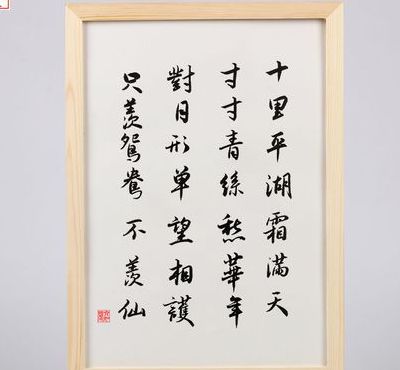 十里平湖霜满天
寸寸青絲愁華年
對月形单望相護
只羡鴛鴦不羡仙